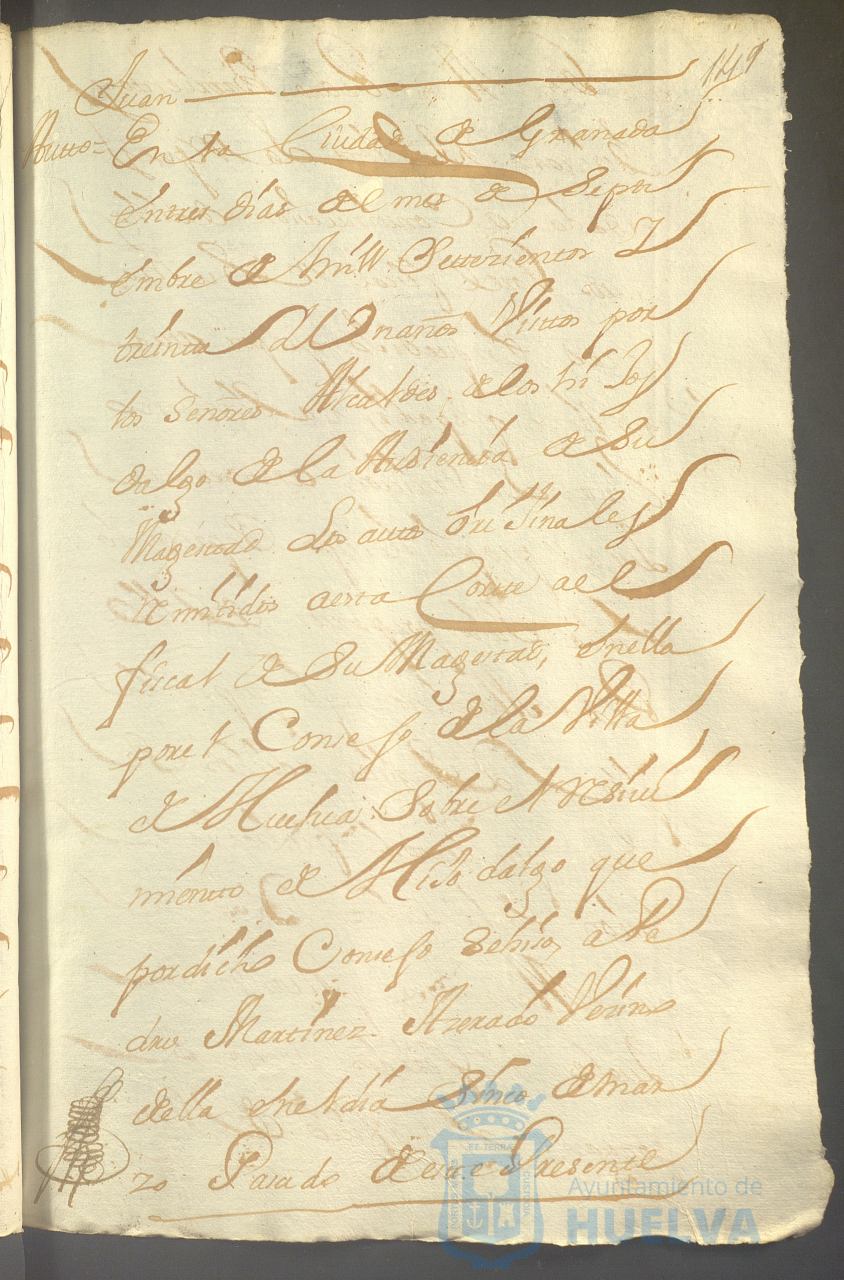 149
Juan
Autto = En la Ciudad de Granada
entres días del mes de Septi
embre de mill Settezientos Y
treinta Y Un años Vistos por
los Señores Alcaldes, de los hijos
dalgo de la Audiencia de Su
Magestad Los autos Orijinales
Remitidos a esta Corte a el
fiscal de Su Magestad, en ella
por el Consejo de la Villa
de Huelva Sobre el Resiui
miento de Hijo dalgo que
por dicho Consejo Sehiso, a Pe
dro Martinez Azerado Vezino
della en el día Sinco de mar
zo Pasado de este Presente
ET TERRA
Ayuntamiento de
HUELVA